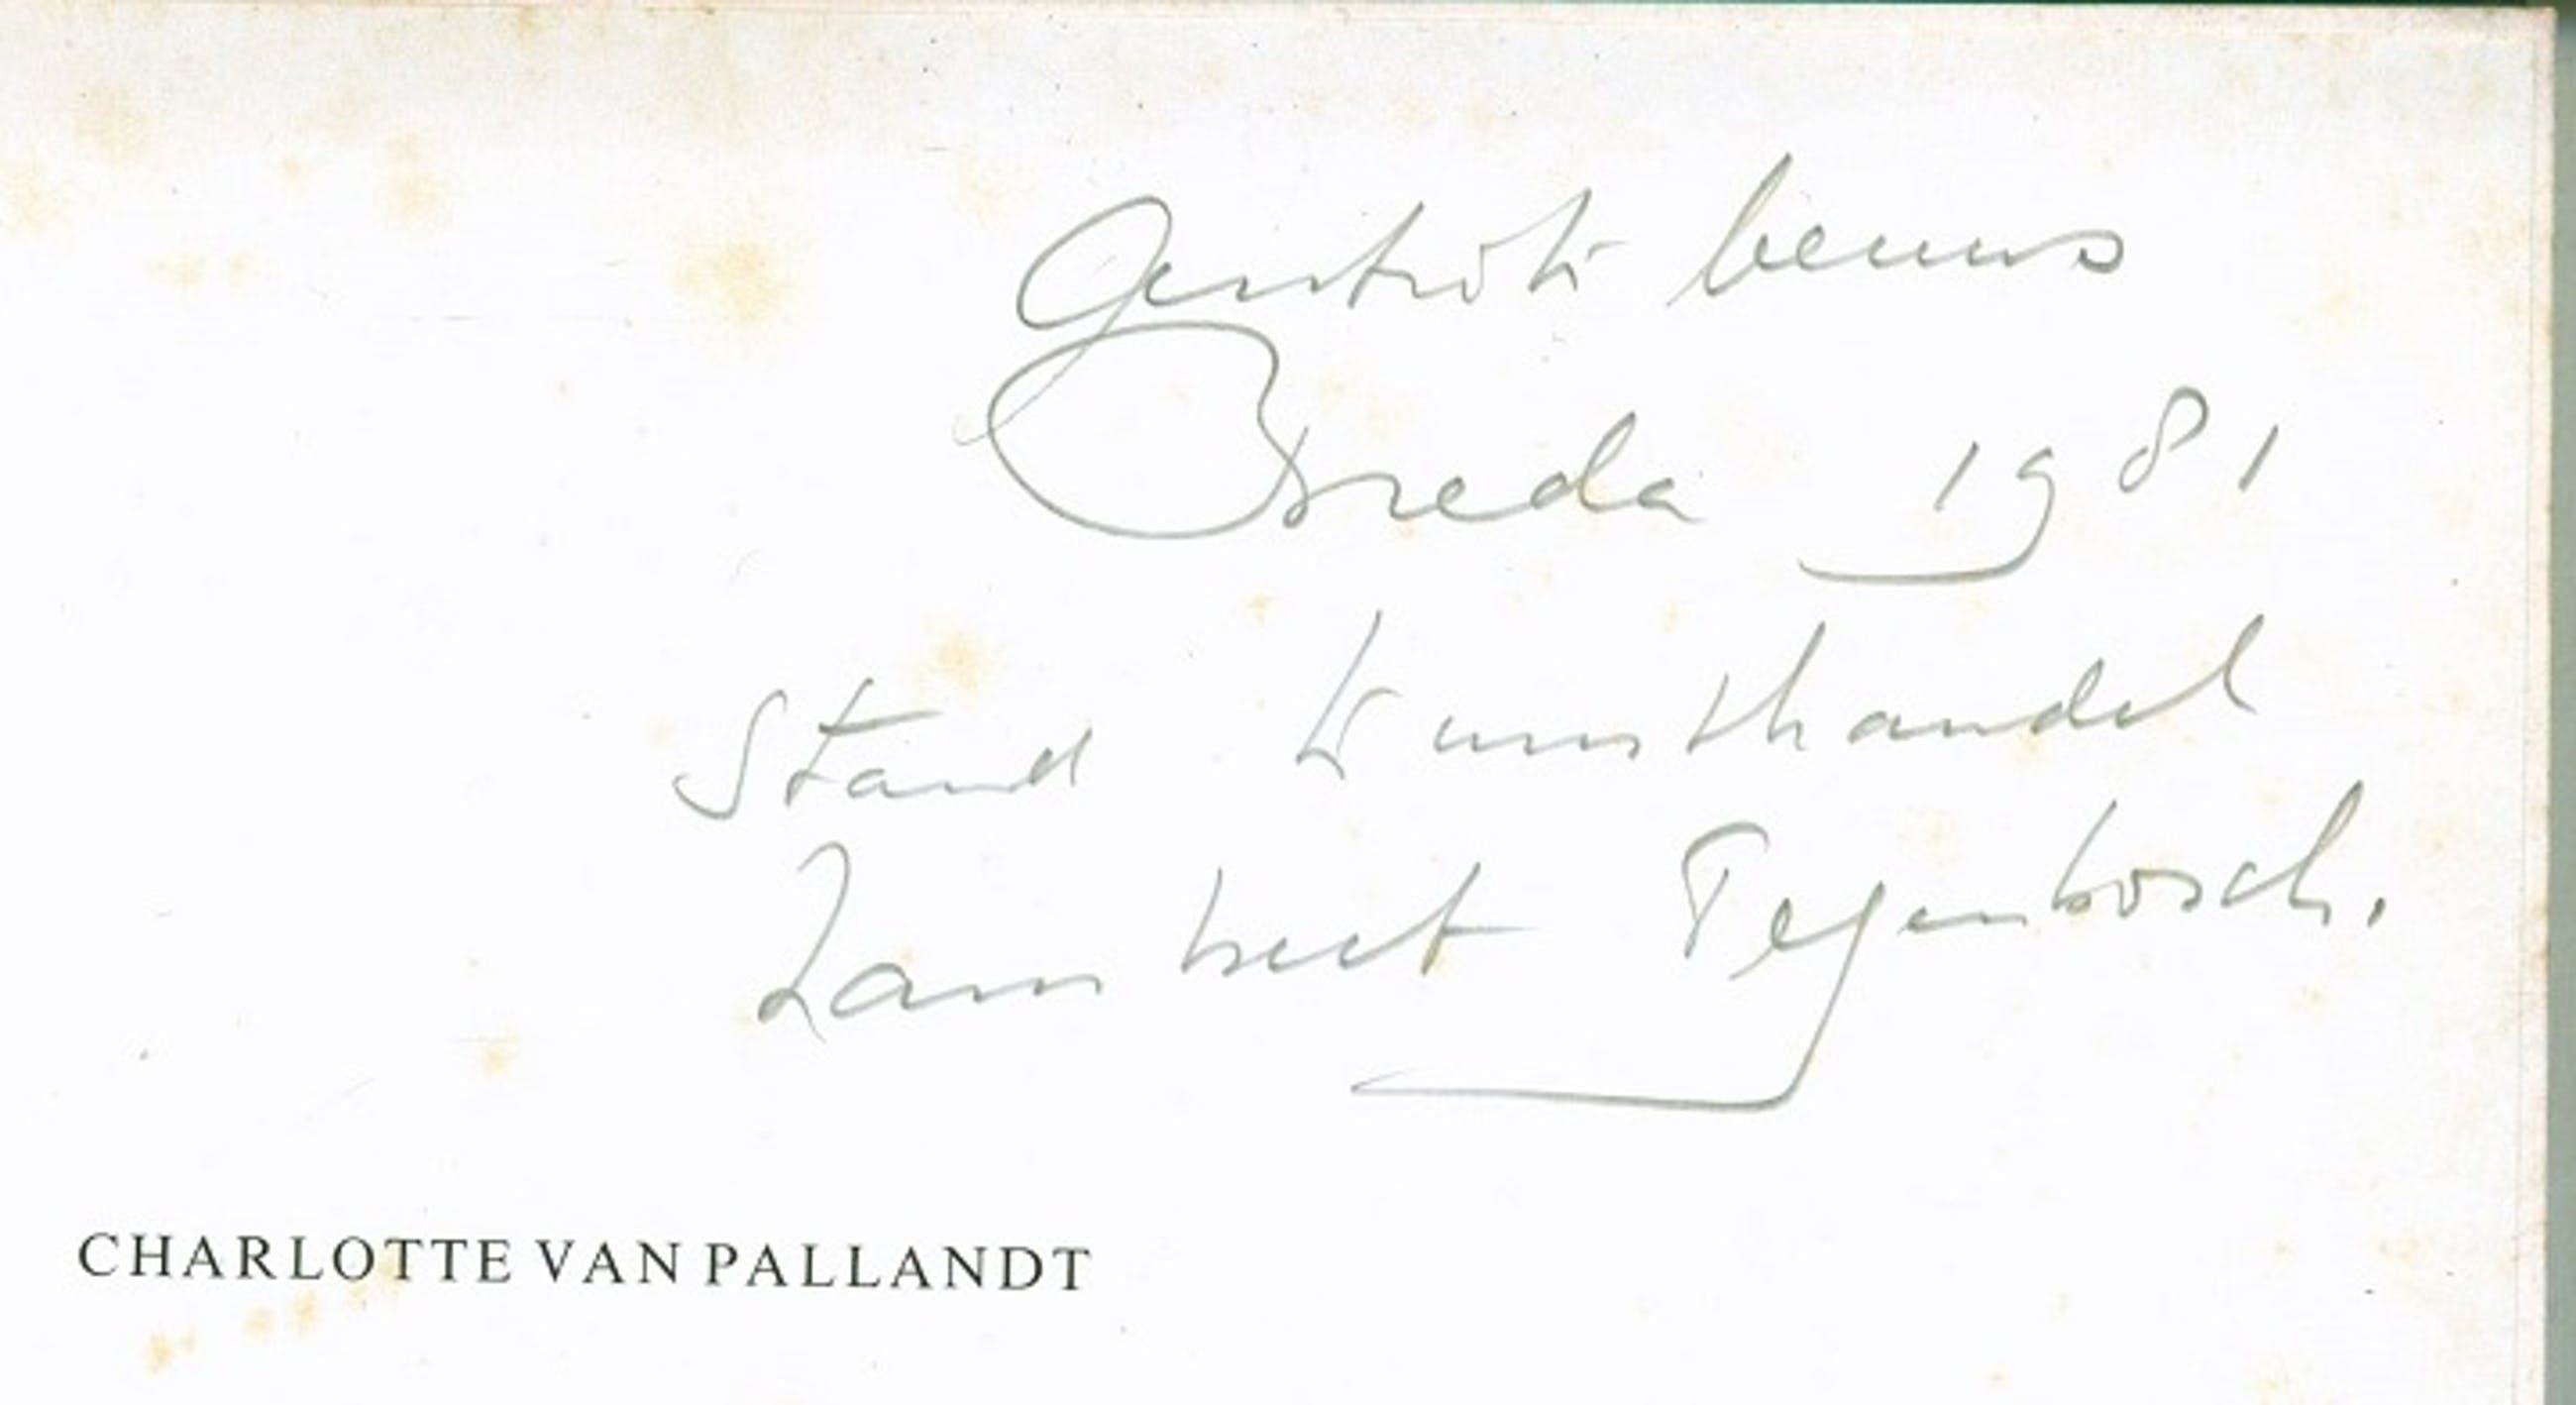 Antiekbeurs
Breda 1981
Stand Kunsthandel
Lambert Tegenbosch.
CHARLOTTE VAN PALLANDT